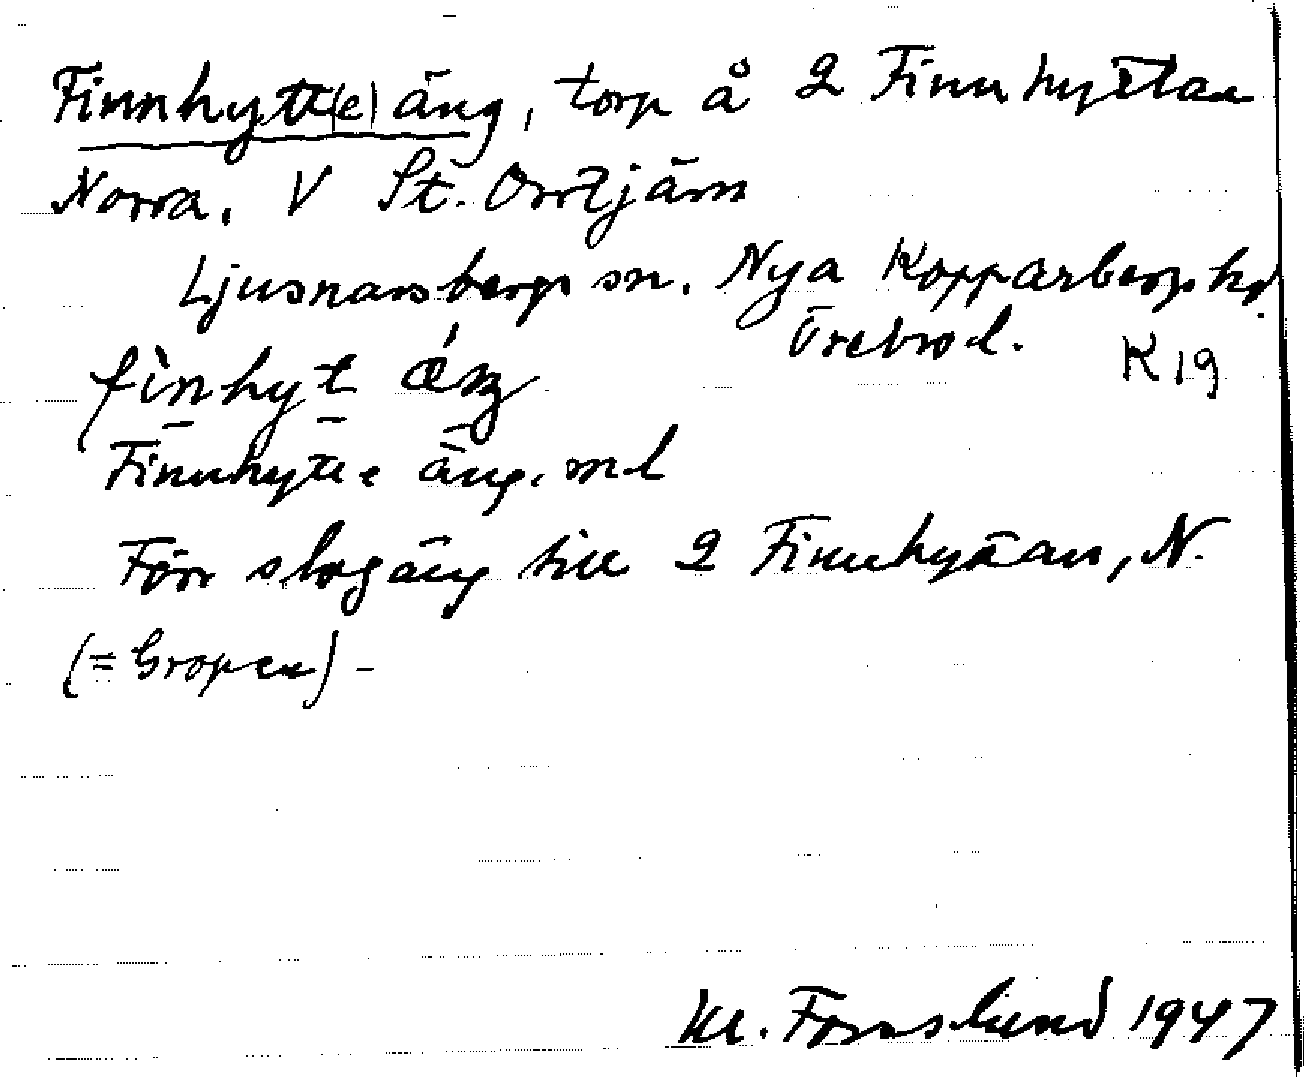 Finnhytt(e)äng, torp å 2 Finnhyttan
Norra. V St. Orrtjärn
Ljusnarsbergs sn. Nya Kopparbergs hd
Örebro l. K 19
fìnhyt ǽŋ
Finnhytte äng. ml
Förr slogäng till 2 Finnhyttan, N.
(= Gropen) -
Kl. Forslund 1947